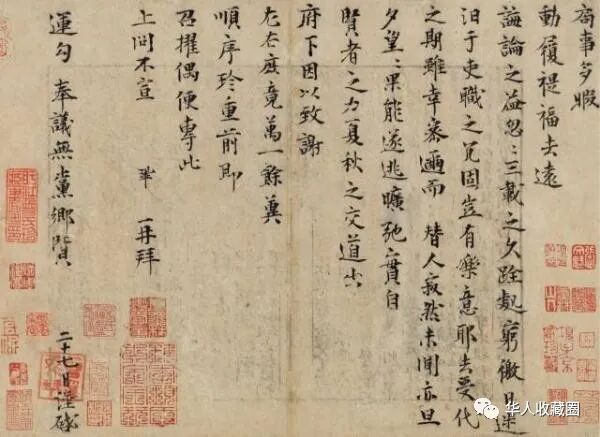 局事多暇
動履禔福去遠
誨論之益忽〻三載之久跧處窮徼日迷
汨于吏職之冗固豈有樂意耶去受代
之期雖幸密邇而 替人寂然未聞亦旦
夕望〻果能遂逃曠弛實自
賢者之力夏秋之交道出
府下因以致謝
左右庶竟萬一餘冀
順序珍重前即
召擢偶便專此
上問不宣 鞏 再拜
運勾 奉議無黨鄉賢
二十七日謹啟
华人收藏圈